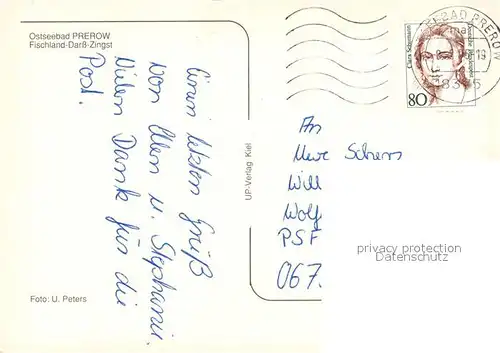 Ostseebad PREROW
Fischland-Darß-Zingst
Einen letzten Gruß
von Ellen u. Stephanie.
Vielen Dank für die
Post.
Foto: U. Peters
UP-Verlag Kiel
Clara Schumann
Deutsche Bundespost
80
BAD PREROW
An
Uwe Schem
Will
Wolf
PSF
067.
privacy protection
Datenschutz